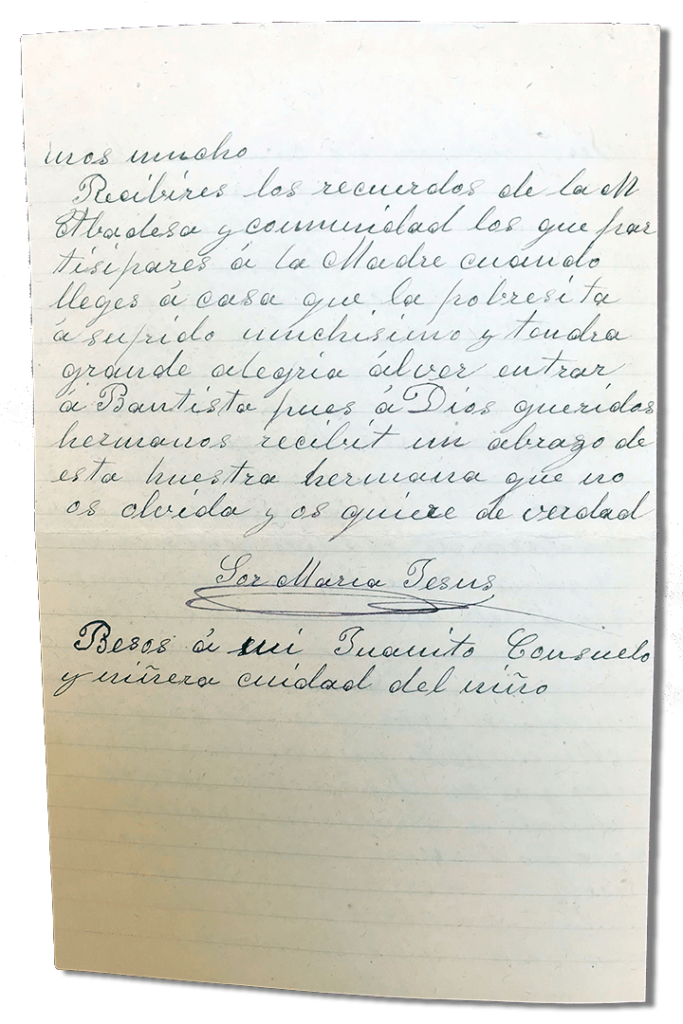 mos mucho
Recibires los recuerdos de la M
Abadesa y comunidad los que par
tisipares á la Madre cuando
lleges á casa que la pobresita
á sufrido muchisimo y tendra
grande alegria ál ver entrar
á Bautista pues á Dios queridos
hermanos recibit un abrazo de
esta huestra hermana que no
os olvida y os quiere de verdad
Sor Maria Jesus
Besos á mi Juanito Consuelo
y niñera cuidad del niño